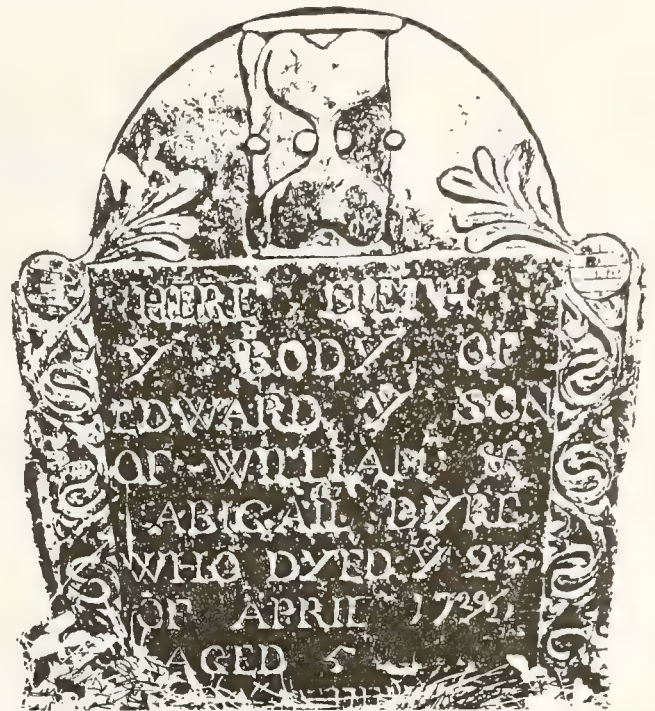 HERE LIETH
Y BODY OF
EDWARD Y SON
OF WILLIAM &
ABIGAIL DYRE
WHO DYED Y 25
OF APRIL
AGED 5